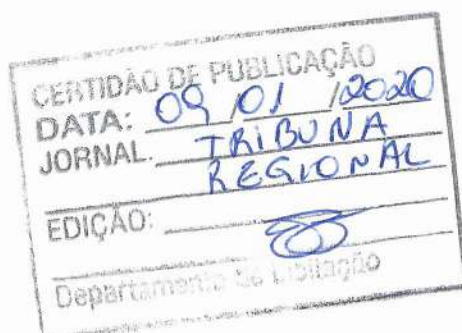 CERTIDÃO DE PUBLICAÇÃO
DATA: 09 / 01 / 2020
JORNAL. TRIBUNA
REGIONAL
EDIÇÃO:
Departamento de Licitação